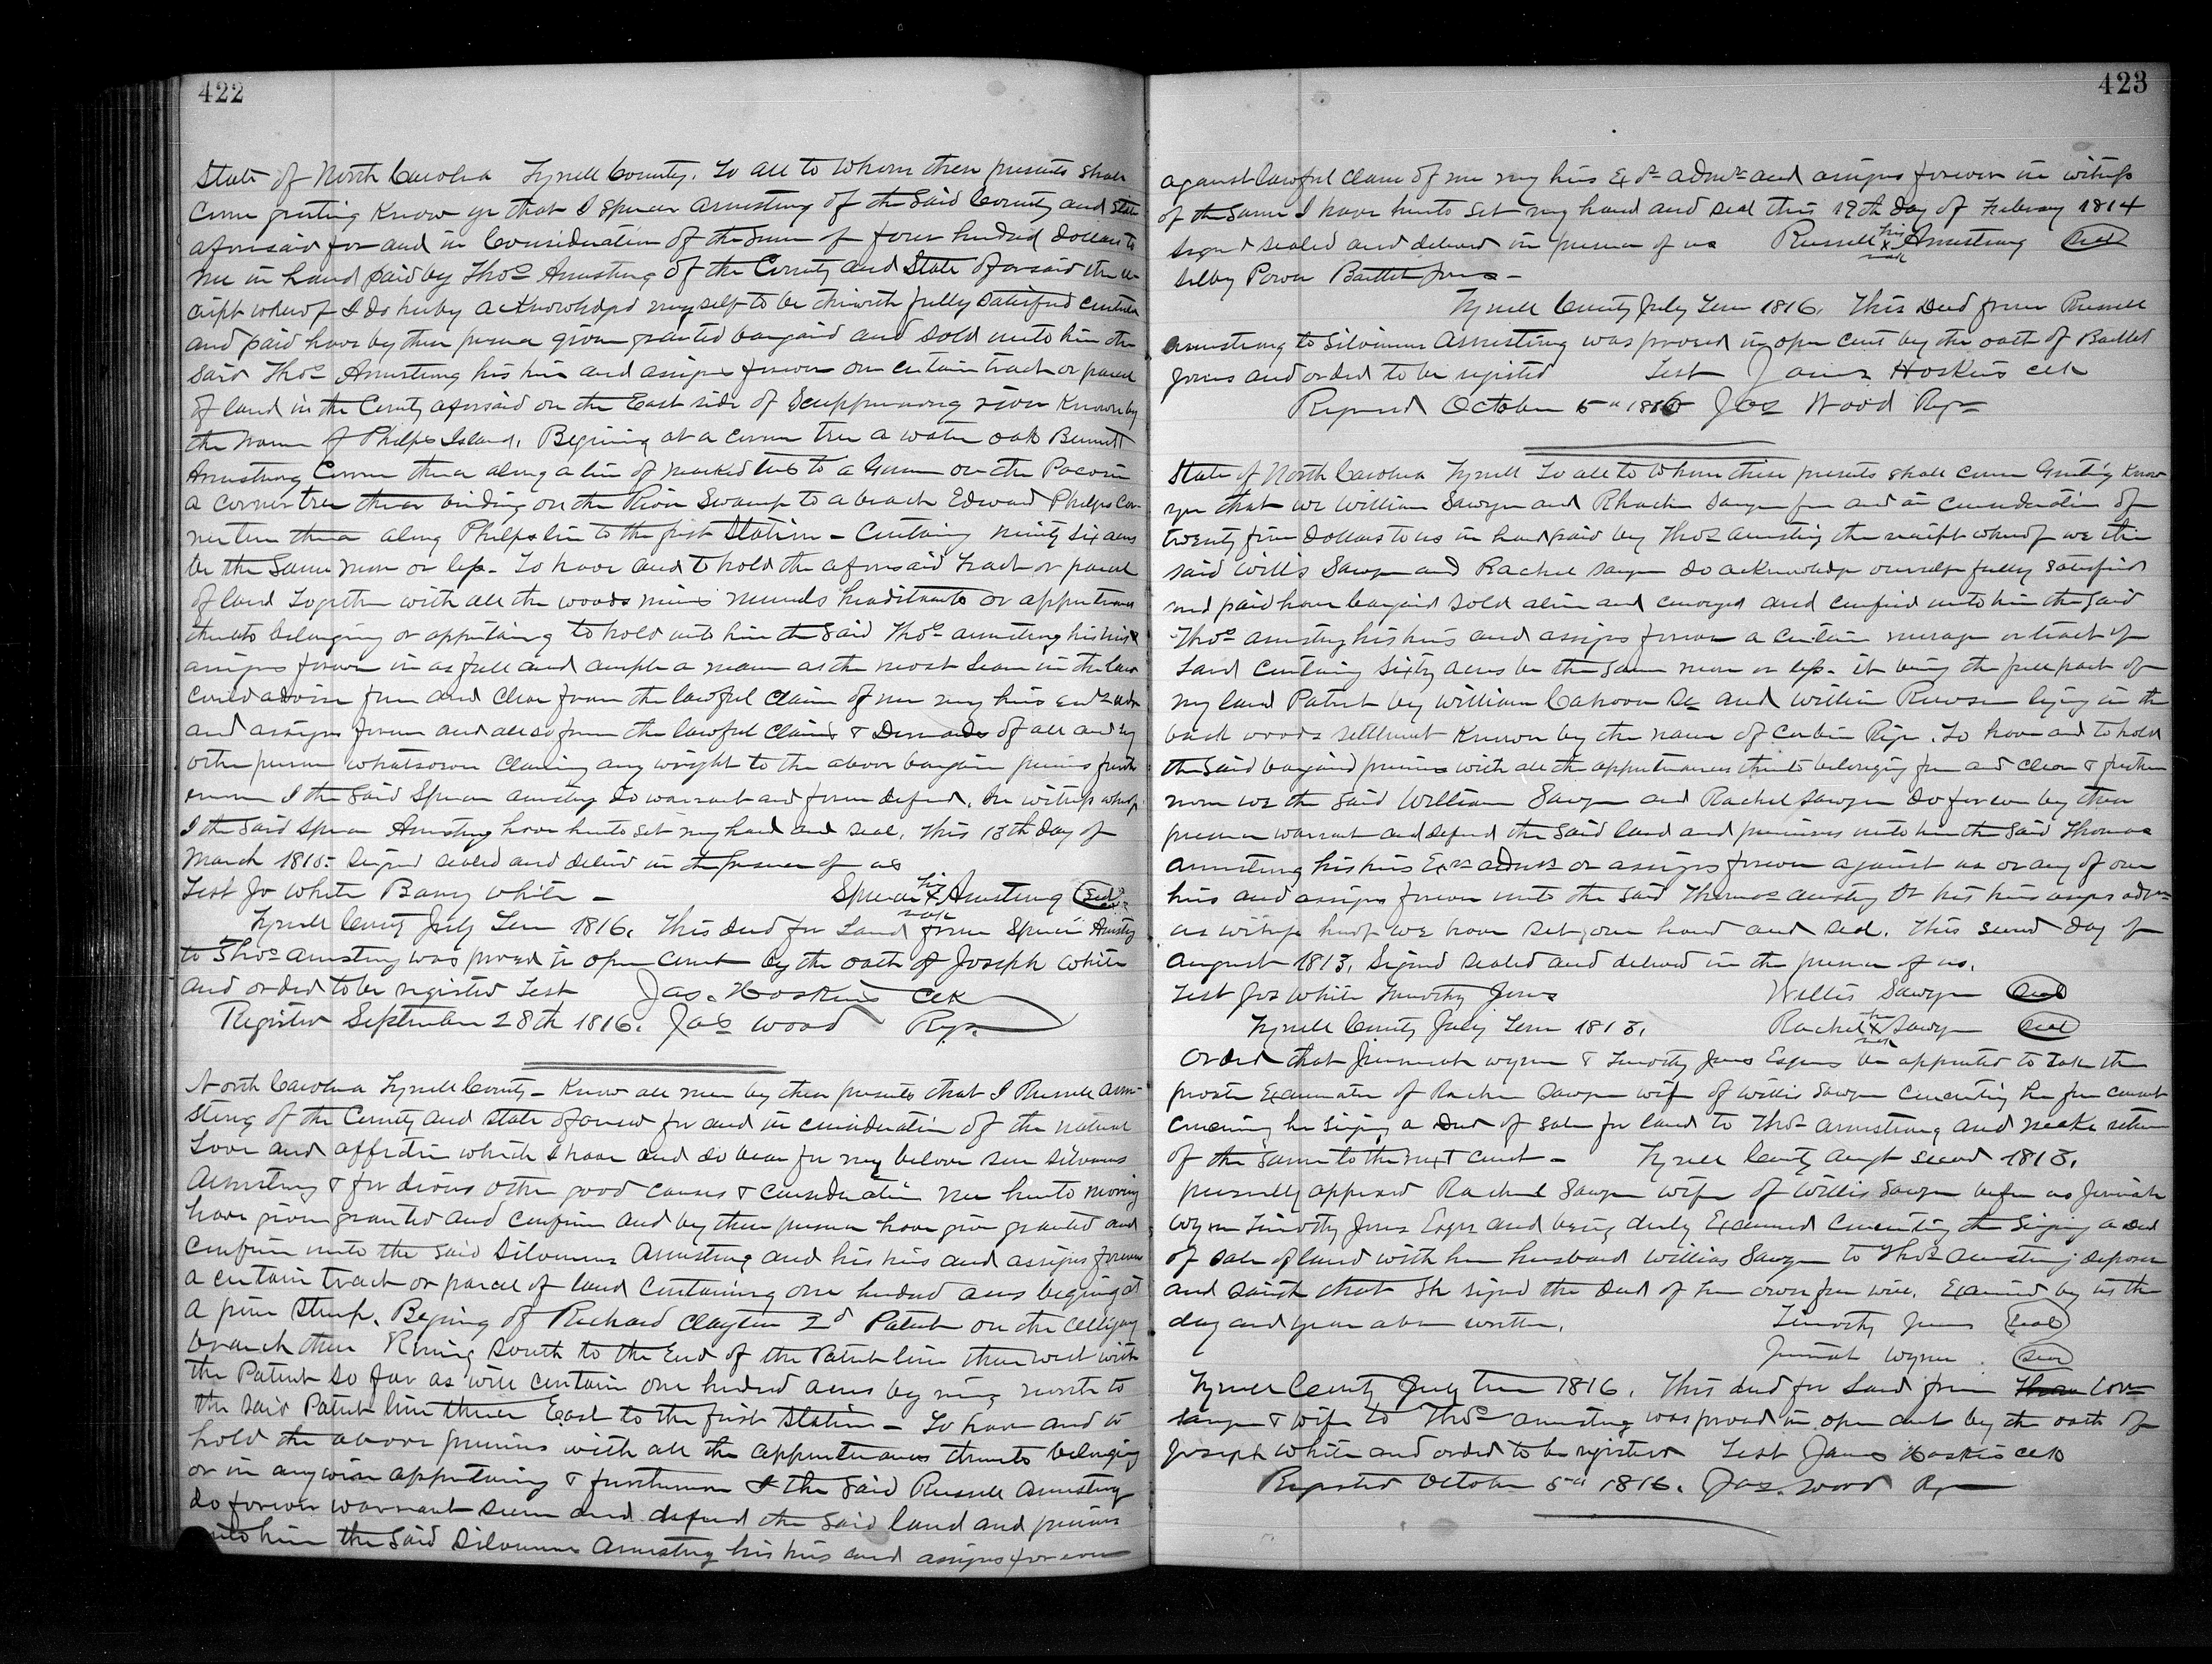 422
State of North Carolina Tyrrell County. To all to Whom these presents shall
Come greting Know ye that I Spencer Armstrong of the Said County and State
aforesaid for and in Consideration of the Sum of four hundred Dollars to
me in hand paid by Thos Armstrong of the County and State aforesaid the re-
ceipt whereof I do hereby acknowledged myself to be therewith fully Satisfied Contented
and paid have by these presence given granted bargaind and Sold unto him the
Said Thos Armstrong his heirs and assigns forever one certain tract or parcel
of land in the County aforesaid on the East side of Scuppernong river Known by
the name of Phelps Island. Begining at a corner tree a water oak Bennett
Armstrong Corner thence along a line of marked trees to a Gum on the Pocosin
a corner tree thence binding on the River Swamp to a beach Edward Phelps Cor-
ner tree thence along Phelps line to the first Station - Containing ninty Six acres
be the Same more or less. To have and to hold the aforesaid Tract or parcel
of land Together with all the woods mines minerals heraditments or appurtenances
thereto belonging or appertaining to hold unto him the Said Thos Armstrong his heirs &
assigns forever in as full and ample a maner as the most learn in the law
could advise free and Clear from the lawful Claim of me my heirs exrs adr
and assigns forever and allso from the lawful Claims & Demands of all and ey
other person whatsoever Claiming any wright to the above bargain premis further
more I the Said Spencer Armstrong do warrant and forever defend. In witness whereof
I the Said Spencer Armstrong have hunto Set my hand and Seal. This 13th day of
March 1815. Signed Sealed and Deliverd in the presence of us
Test Jo White Barry White - Spencer his X mark Armstrong Seal
Tyrrell County July Term 1816. This deed for Land from Spencer Armstrong
to Thos Armstrong was proved in open Court by the oath of Joseph White
and orderd to be registerd Test Jas. Hoskins Clk
Register September 28th 1816. Jas Wood Regr.
North Carolina Tyrrell County - Know all men by these presents that I Russell Arm-
strong of the County and State aforesaid for and in consideration of the natural
Love and affection which I have and do bear for my belove son Silvanus
Armstrong & for divers other good causes & consideration me hunto moving
have given granted and confirm and by these presence have give granted and
Confirm unto the Said Silvanus Armstrong and his heirs and assigns forever
a certain tract or parcel of land Containing one hundred acres begining at
a pine Stump. Begining of Richard Clayton 2d Patent on the
branch then Runing South to the End of the Patent line then west with
the Patent so far as will contain one hundred acres by runing north to
the said Patent line thence East to the first Station - To have and to
hold the above premises with all the appurtenances thereto belonging
or in anywise appertaining & furthermore I the Said Russell Armstrong
do forever warrant secure and defend the Said land and premises
unto him the Said Silvanus Armstrong his heirs and assigns for ever
423
against lawful claim of me my heirs Exrs admrs and assigns forever in witness
of the Same I have hunto Set my hand and Seal this 19th day of February 1814
Signd Sealed and deliverd in presence of us Russell his X mark Armstrong Seal
Selby Power Bartlet Jones -
Tyrrell County July Term 1816. This Deed from Russell
Armstrong to Silvanus Armstrong was proved in open Court by the oath of Bartlet
Jones and orderd to be registerd Test James Hoskins Clk
Registered October 5th 1816 Jas Wood Regr
State of North Carolina Tyrrell To all to Whom these presents shall come Greeting Know
ye that we William Sawyer and Rhachel Sawyer for and in consideration of
twenty five Dollars to us in hand paid by Thos Armstrong the receipt whereof we the
said Willis Sawyer and Rachel Sawyer do acknowledge ourselves fully satisfied
and paid have bargaind sold alien and conveyed and confired unto him the Said
Thos Armstrong his heirs and assigns forever a certain mesage or tract of
Land Containing Sixty acres be the Same more or less. it being the full part of
my land Patent by William Cahoon Sr and William lying in the
back woods settlment Known by the name of Cabin Rige. To have and to hold
the Said bargaind premises with all the appurtenances thereto belonging free and clear & further
more we the Said William Sawyer and Rachel Sawyer do forever by these
presence warrant and defend the Said land and premises unto him the Said Thomas
Armstrong his heirs Exrs admrs or assigns forever against us or any of our
heirs and assigns forever unto the Said Thomas Armstrong Or his heirs assigns admrs
in witness hereof we have Set our hand and Seal. This second day of
August 1813. Signed Sealed and delived in the presence of us.
Test Jos White Timothy Jones Willis Sawyer Seal
Tyrrell County July Term 1813. Rachel her X mark Sawyer Seal
Orderd that Jeremiah Wynne & Timothy Jones Esqrs be appointed to take the
private Examination of Rachel Sawyer wife of Willis Sawyer Concerting her free consent
Concerning her Signing a Deed of Sale for land to Thos Armstrong and make return
of the Same to the next Court - Tyrrell County Augt second 1813.
personelly appeard Rachel Sawyer wife of Willis Sawyer before us Jeremiah
Wynn Timothy Jones Esqrs and being duly Examined Concerting the Signing a Deed
of Sale of land with her husband Willias Sawyer to Thos Armstrong deposeth
and Saith that She signed the deed of her own free will. Examined by us the
day and year above written. Timothy Jones Seal
Jeremiah Wynne. Seal
Tyrrell County July Term 1816. This deed for Land from
Sawyer & wife to Thos Armstrong was proved in open Court by the oath of
Joseph White and orderd to be registerd Test James Hoskins Clk
Registerd October 5th 1816. Jas. Wood Regr